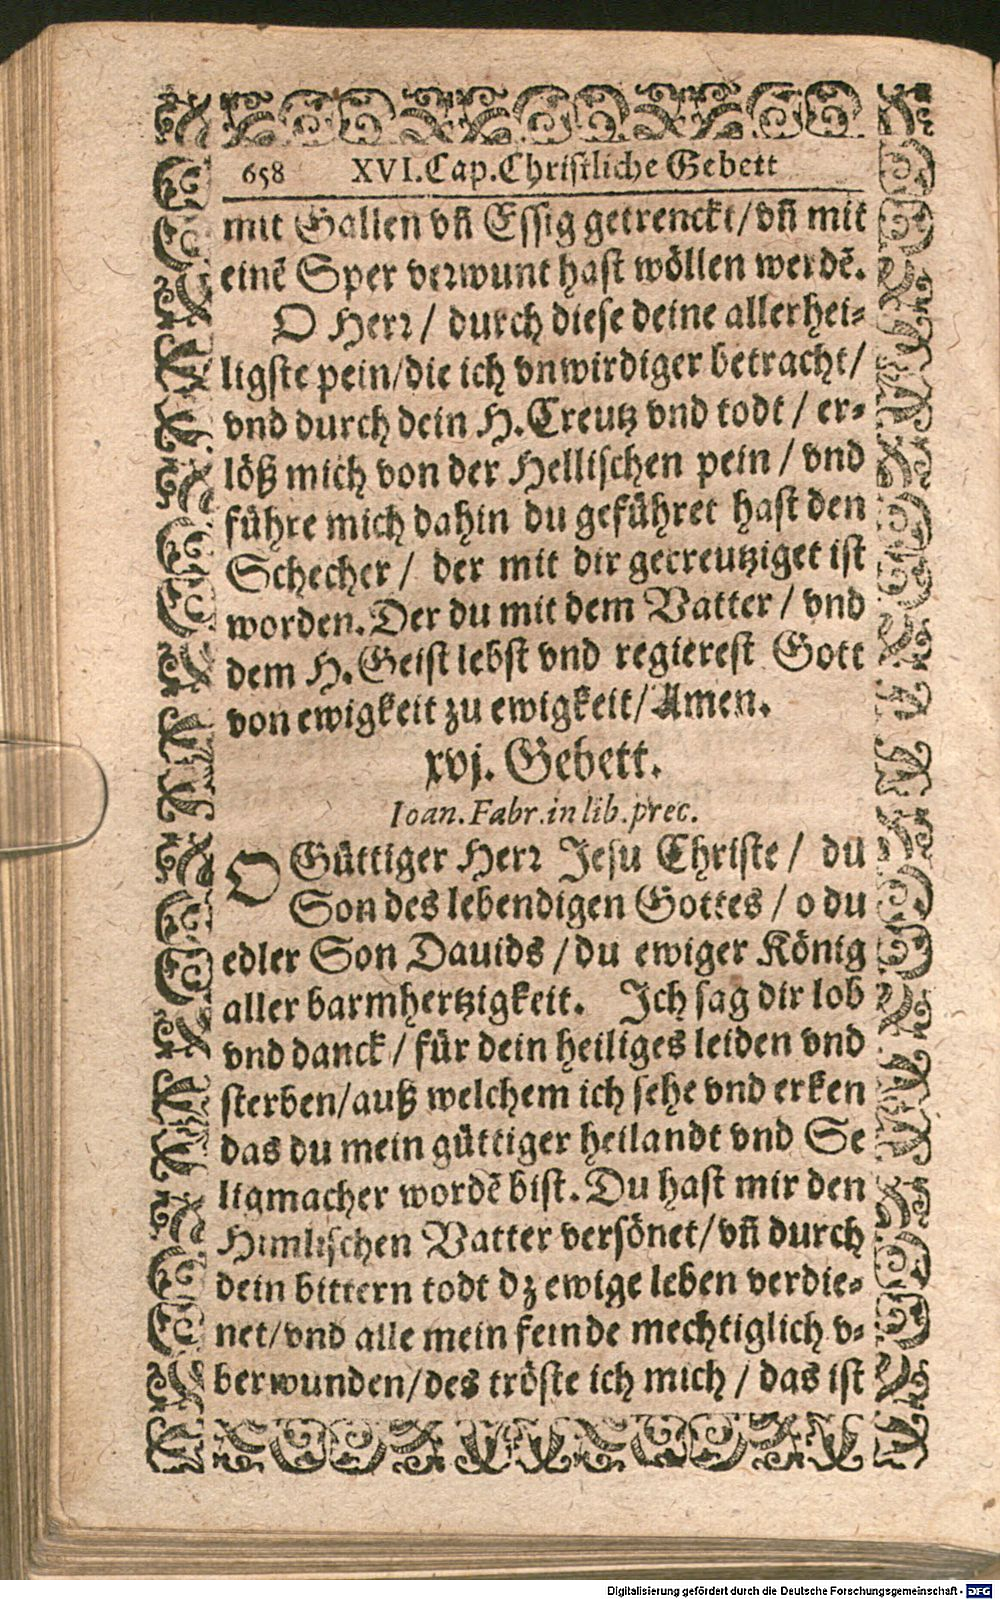 658 XVI. Cap. Christliche Gebett
mit Gallen vñ Essig getrenckt/ vñ mit
einẽ Sper verwunt hast wöllen werdẽ.
O Herr/ durch diese deine allerhei-
ligste pein/ die ich vnwirdiger betracht/
vnd durch dein H. Creutz vnd todt/ er-
löß mich von der Hellischen pein/ vnd
führe mich dahin du geführet hast den
Schecher/ der mit dir gecreutziget ist
worden. Der du mit dem Vatter/ vnd
dem H. Geist lebst vnd regierest Gott
von ewigkeit zu ewigkeit/ Amen.
xvj. Gebett.
Ioan. Fabr. in lib. prec.
O Güttiger Herr Jesu Christe/ du
Son des lebendigen Gottes/ o du
edler Son Dauids/ du ewiger König
aller barmhertzigkeit. Ich sag dir lob
vnd danck/ für dein heiliges leiden vnd
sterben/ auß welchem ich sehe vnd erken
das du mein güttiger heilandt vnd Se
ligmacher wordẽ bist. Du hast mir den
Himlischen Vatter versönet/ vñ durch
dein bittern todt dz ewige leben verdie-
net/ vnd alle mein feinde mechtiglich v-
berwunden/ des tröste ich mich/ das ist
Digitalisierung gefördert durch die Deutsche Forschungsgemeinschaft - DFG